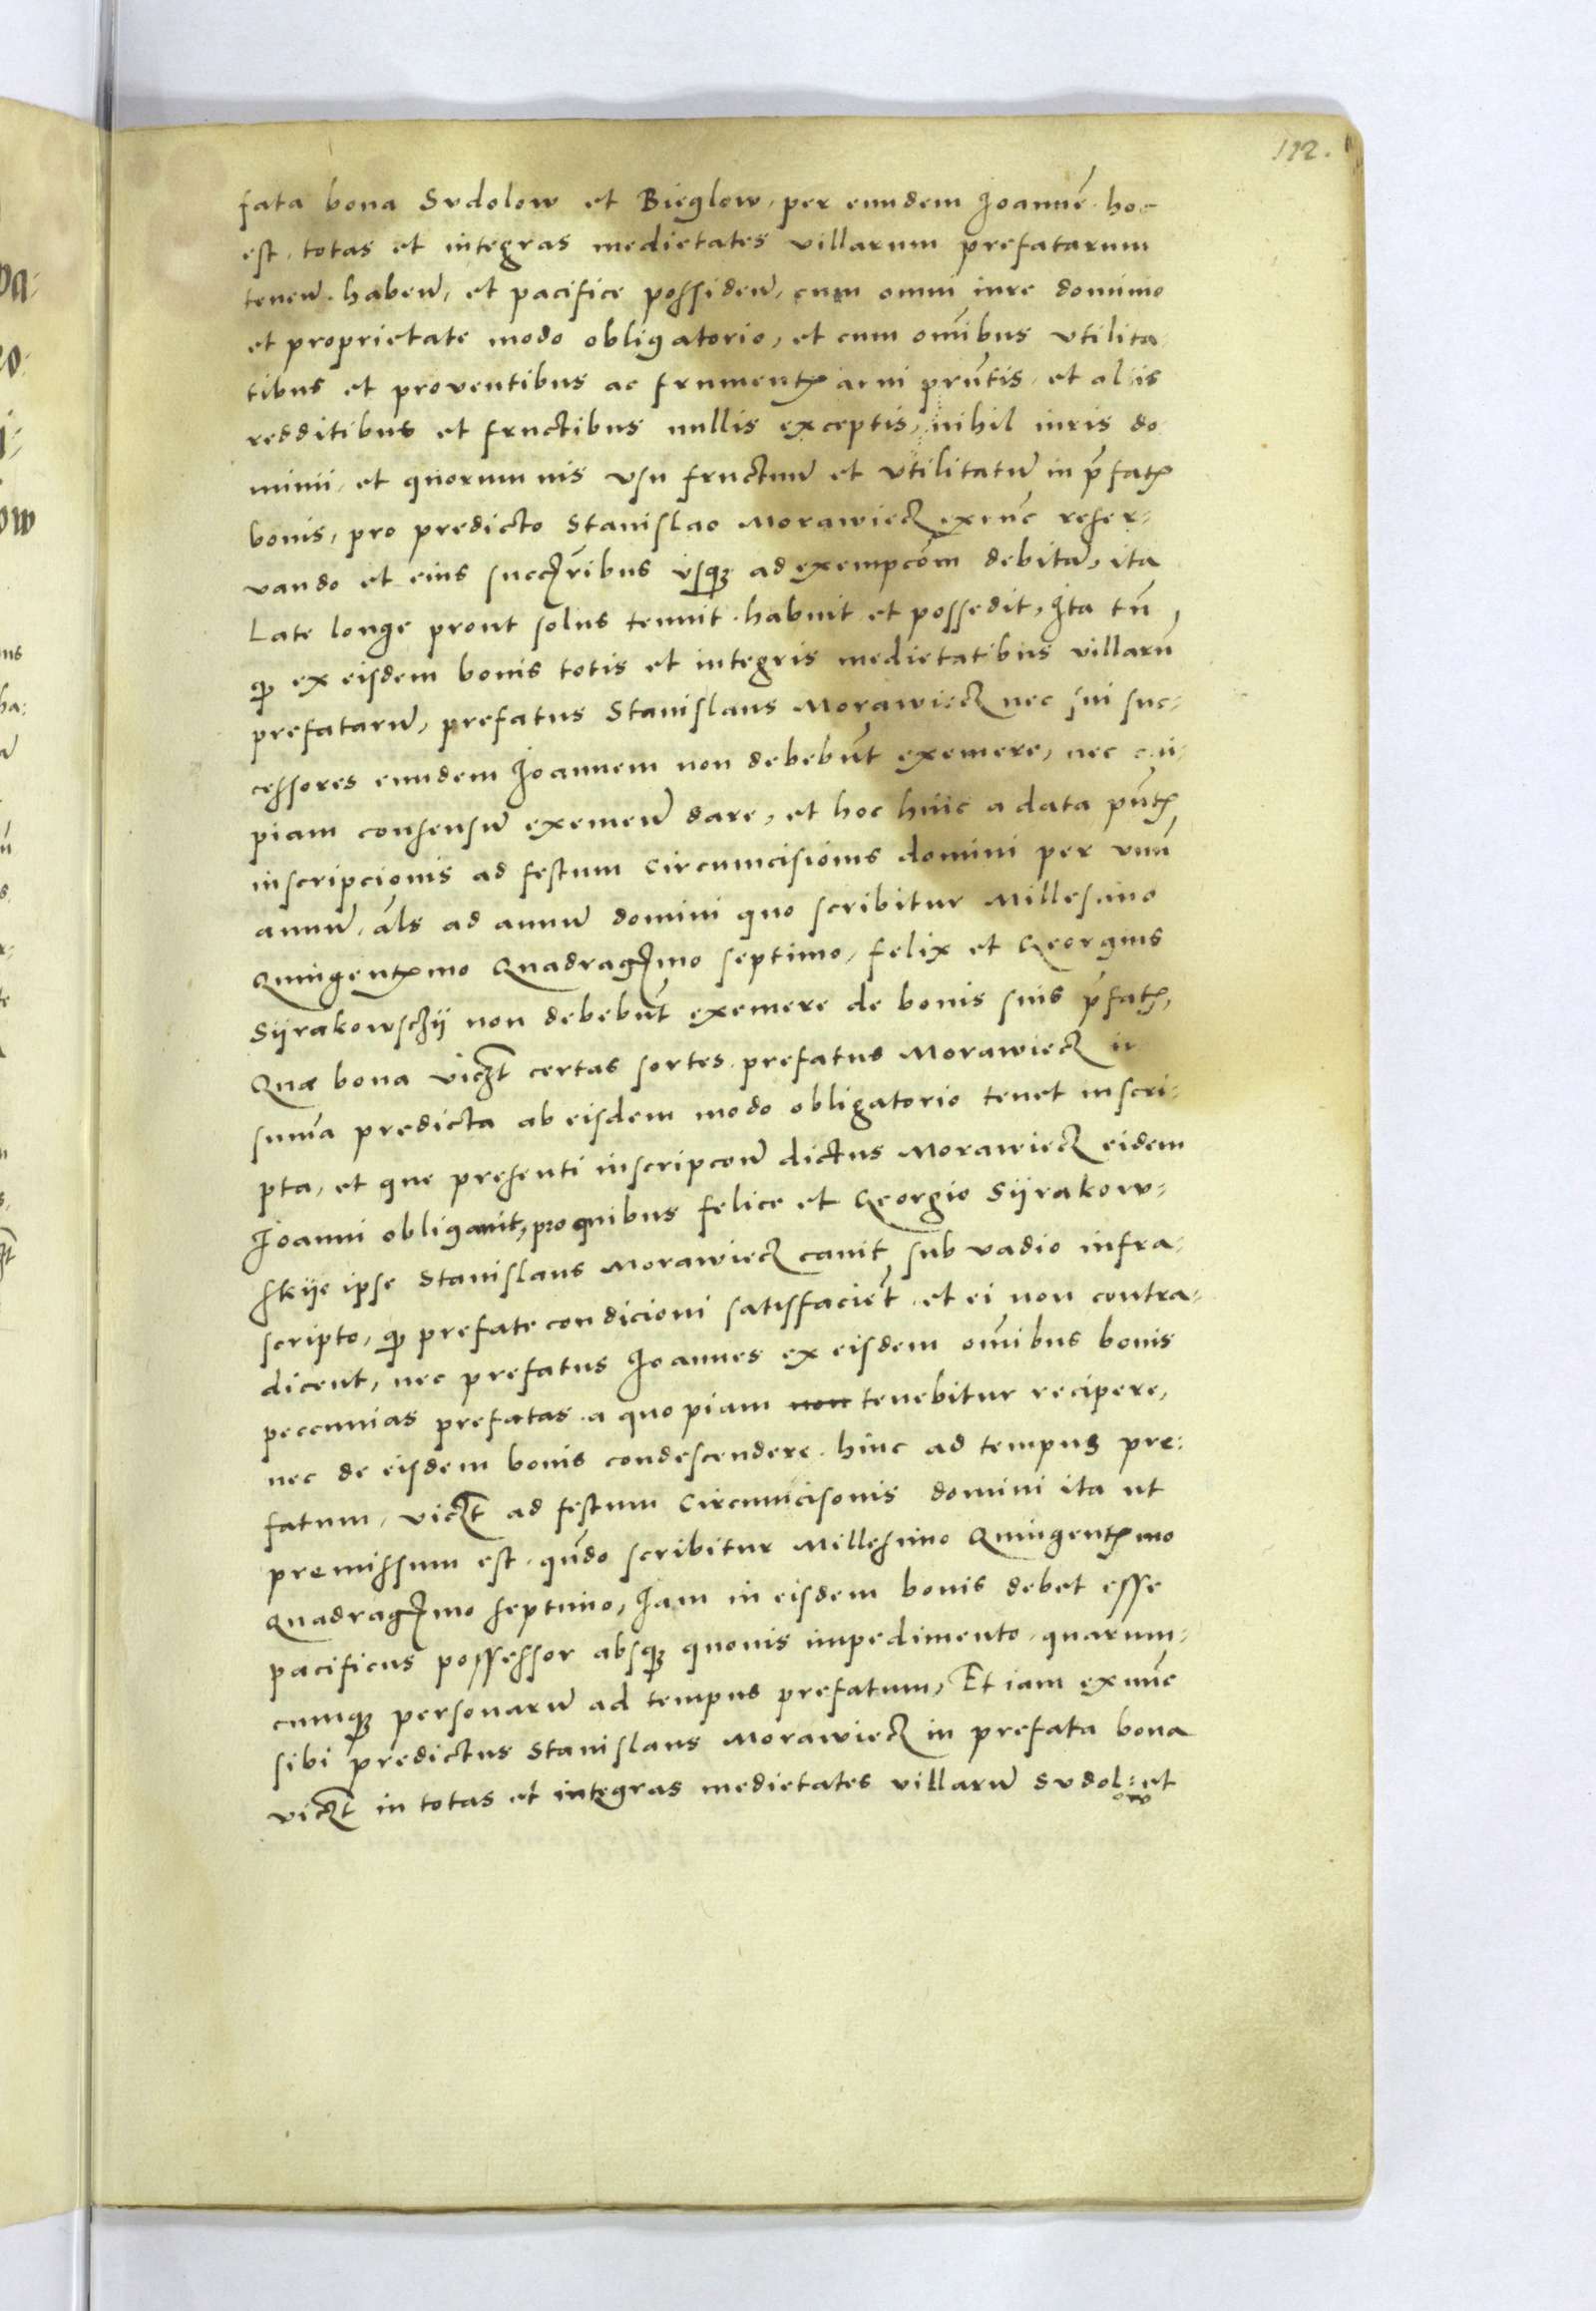 112.
fata bona Sudolow et Bieglow, per eundem Joannē hoc
est, totas et integras medietates villarum prefatarum
tenen̄. haben̄, et pacifice possiden̄, cum omni iure dominio
et proprietate modo obligatorio, et cum om̄ibus vtilita-
tibus et proventibus ac frumentꝭ anni prn̄tis, et aliis
redditibus et fructibus nullis exceptis, nihil iuris do
minii, et quorumuis vsu fructuū et vtilitatū in p̄fatꝭ
bonis, pro predicto Stanislao Morawieck exnūc reser-
vando et eius succꝭribus vsqꝫ ad exempcōm debitā, ita
Late longe prout solus tenuit. habuit et possedit, Ita tn̄,
qꝫ ex eisdem bonis totis et integris medietatibus villarū
prefatarū, prefatus Stanislaus Morawieck nec sui suc-
cessores eundem Joannem non debebūt exemere, nec cui-
piam consensū exemen̄ dare, et hoc hinc a data pn̄tꝭ
inscripcionis ad festum Circumcisionis domini per vnū
annū, als̄ ad annū domini quo scribitur Millesimo
Quingentꝭmo Quadragꝭmo septimo, Felix et Georgius
Sÿrakowsczÿ non debebūt exemere de bonis suis p̄fatꝭ,
Quæ bona viczt certas sortes. prefatus Morawieck in
sum̄a predicta ab eisdem modo obligatorio tenet inscri-
pta, et que presenti inscripcoñe dictus Morawieck eidem
Joanni obligauit, pro quibus Felice et Georgio Sÿrakow-
skÿe ipse Stanislaus Morawieck cauit, sub vadio infra-
scripto, qꝫ prefate condicioni satisfaciēt, et ei non contra-
dicent, nec prefatus Joannes ex eisdem om̄ibus bonis
peccunias prefatas. a quopiam non tenebitur recipere,
nec de eisdem bonis condescendere. hinc ad tempus pre-
fatum, viczt ad festum Circumcisonis domini ita ut
premissum est, qn̄do scribitur Millesimo Quingentꝭmo
Quadragꝭmo septimo, Iam in eisdem bonis debet esse
pacificus possessor absqꝫ quouis impedimento, quarum-
cumqꝫ personarū ad tempus prefatum, Et iam exnūc
sibi predictus Stanislaus Morawieck in prefata bona
viczt in totas et integras medietates villarū Sudol:ow et